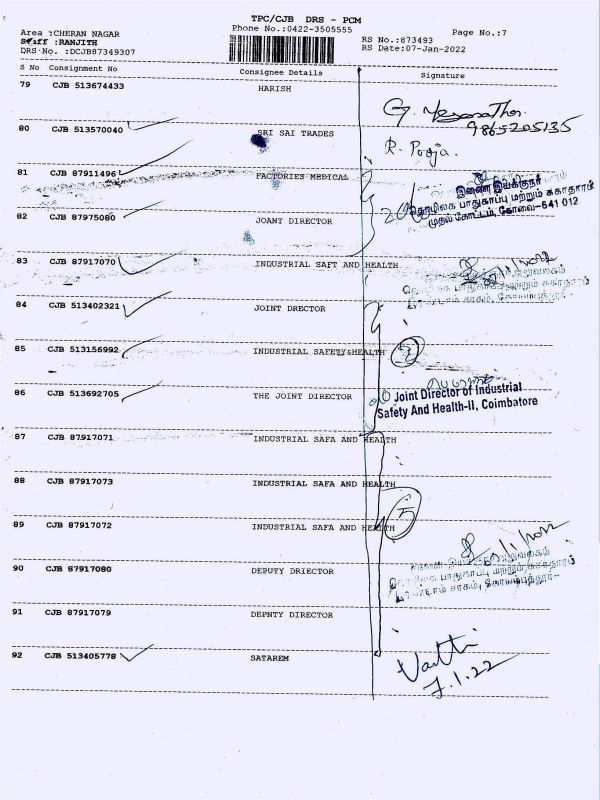 TPC/CJB DRS - PCM
Phone No.:0422-3505555
Area :CHERAN NAGAR
Staff :RANJITH
DRS No. :DCJB87349307
RS No.:873493
RS Date:07-Jan-2022
Page No.:7
S No Consignment No Consignee Details Signature
79 CJB 513674433 HARISH
G.
9865205135
80 CJB 513570040 SRI SAI TRADES
R. Pooja.
81 CJB 87911496 FACTORIES MEDICAL
இணை இயக்குநர்
தொழிலக பாதுகாப்பு மற்றும் சுகாதாரம்
முதல் கோட்டம், கோவை-641 012
82 CJB 87975080 JOANT DIRECTOR
83 CJB 87917070 INDUSTRIAL SAFT AND HEALTH
84 CJB 513402321 JOINT DRECTOR
85 CJB 513156992 INDUSTRIAL SAFETY&HEALTH
86 CJB 513692705 THE JOINT DIRECTOR
Joint Director of Industrial
Safety And Health-II, Coimbatore
87 CJB 87917071 INDUSTRIAL SAFA AND HEALTH
88 CJB 87917073 INDUSTRIAL SAFA AND HEALTH
89 CJB 87917072 INDUSTRIAL SAFA AND HEALTH
90 CJB 87917080 DEPUTY DRIECTOR
91 CJB 87917079 DEPNTY DIRECTOR
92 CJB 513405778 SATAREM
7.1.22